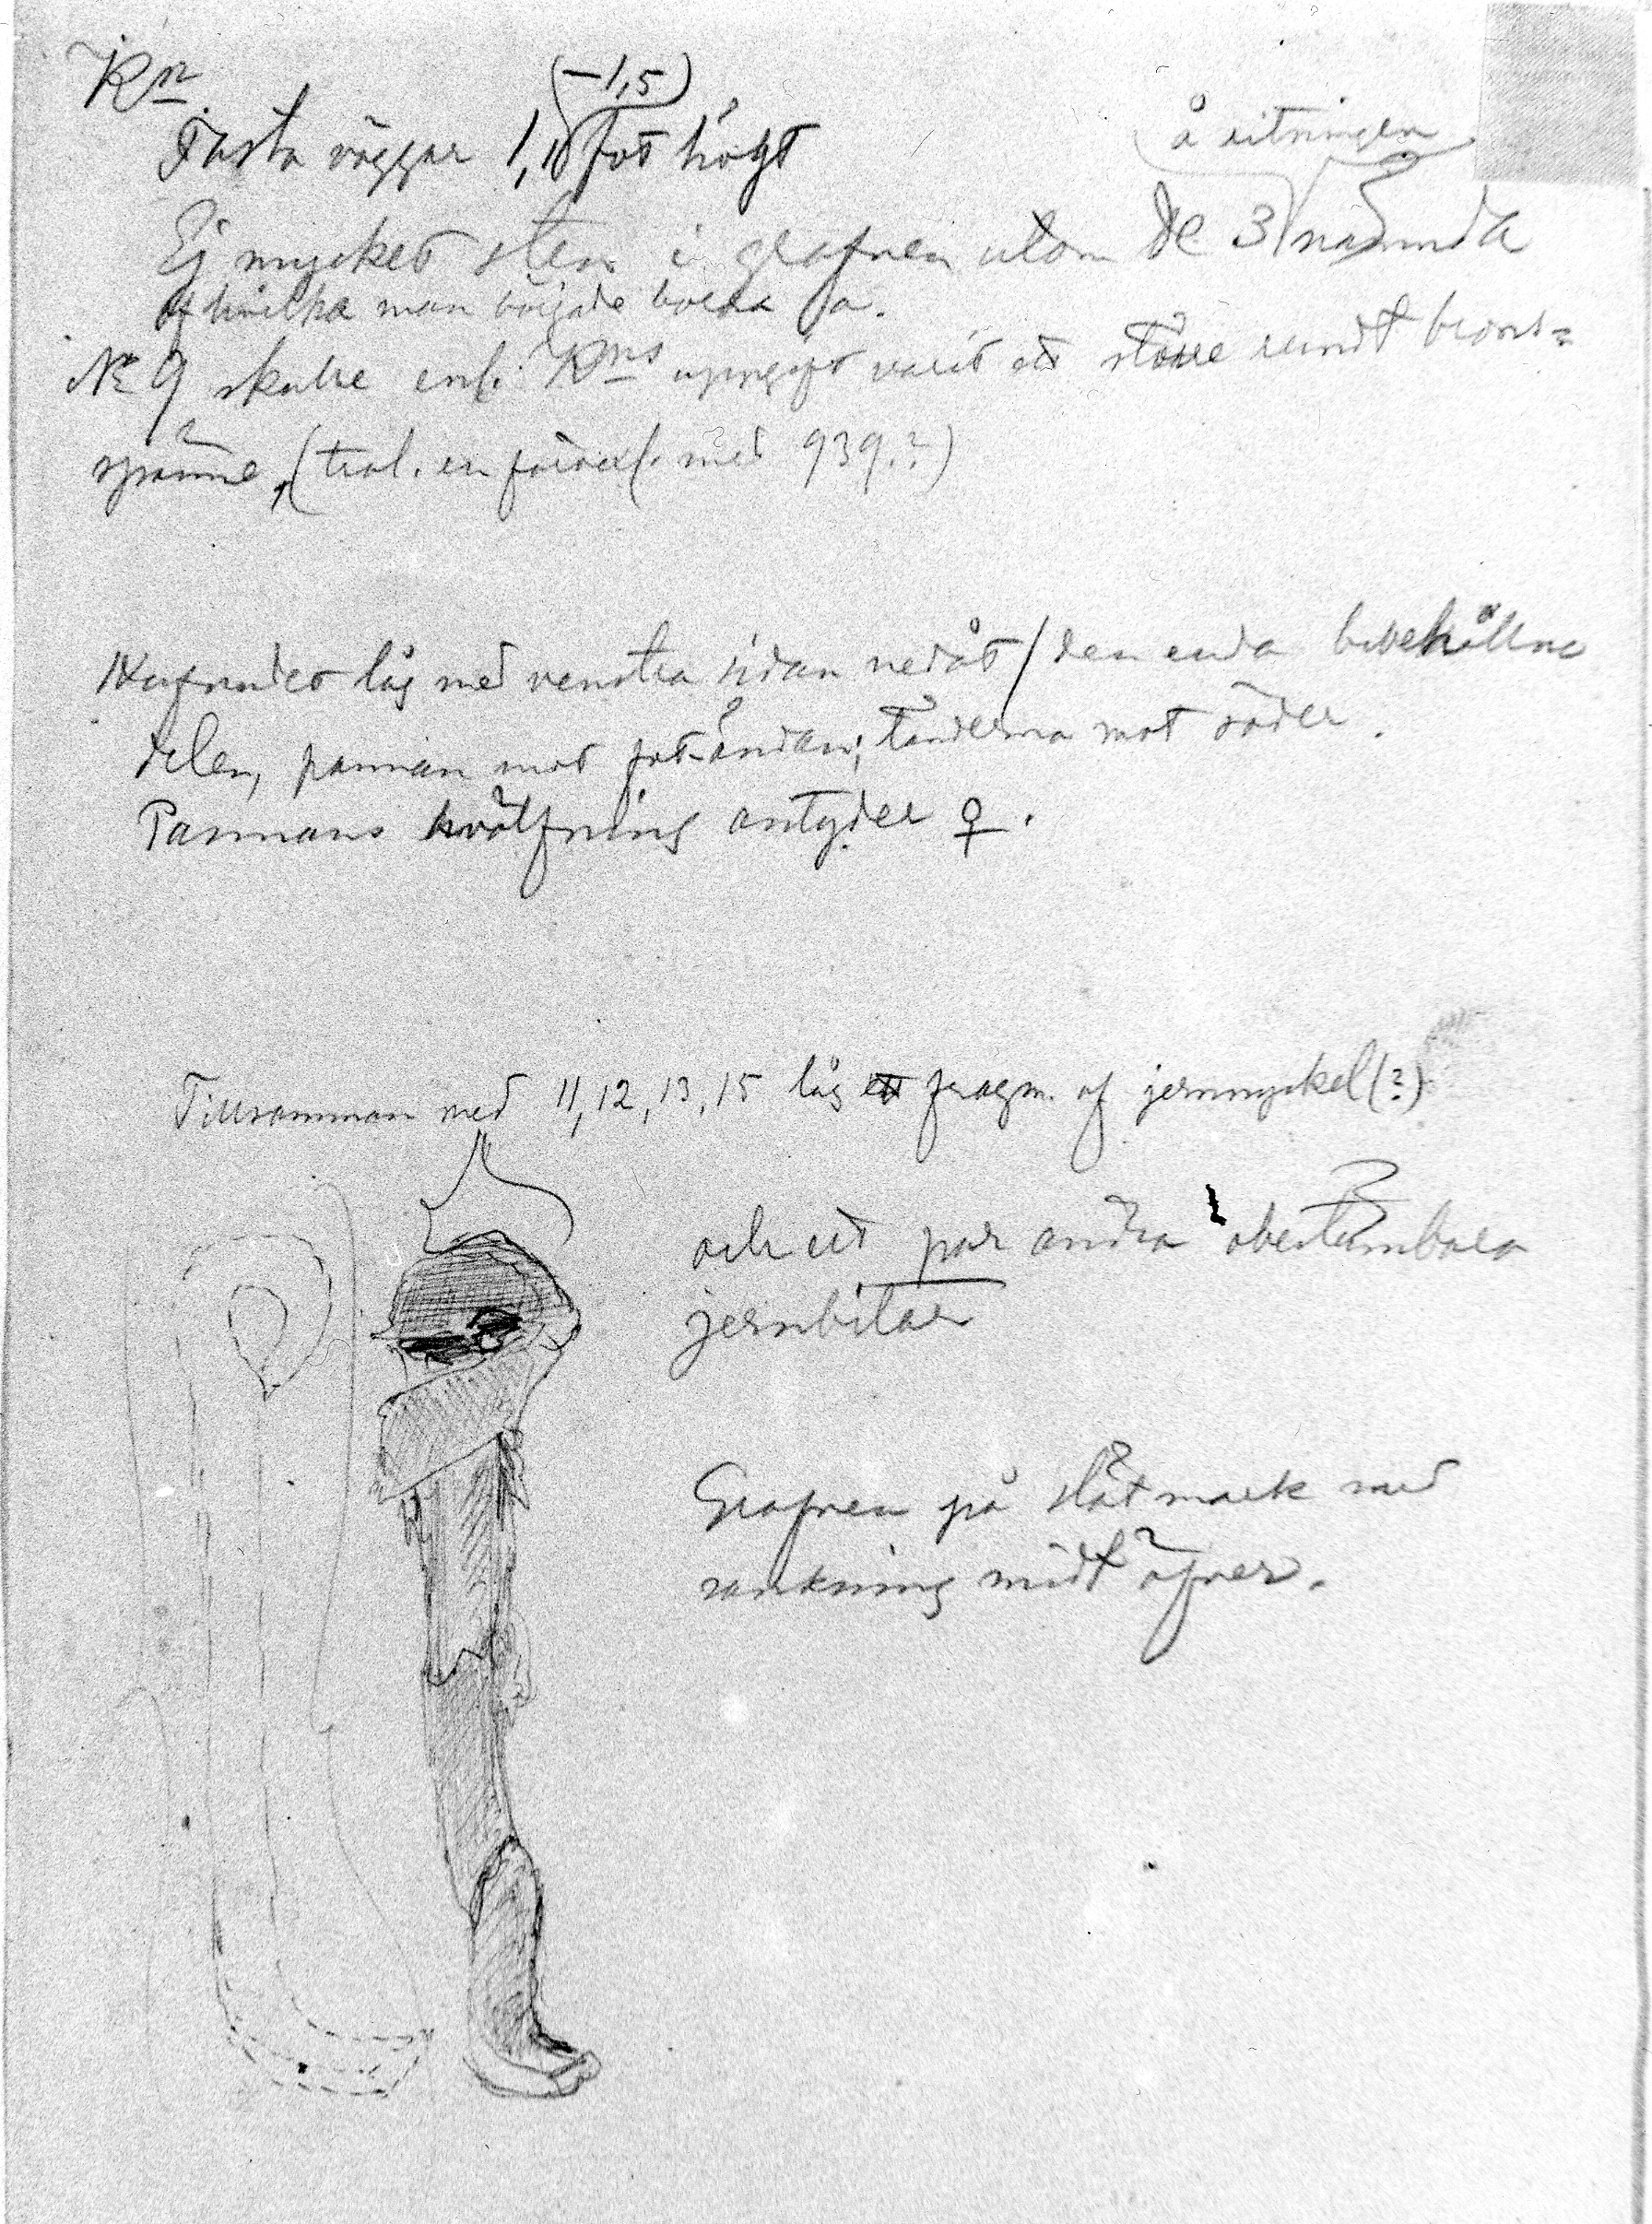 Kn
(-1,5)
Fasta väggar 1,10 fot högt
å ritningen
Ej mycket sten i grafven utom de 3 nämnda
af hvilka man började
No 9 skulle enl. Kns uppgift varit ett större rundt brons-
spänne, (trol. en förvexl. med 939.?)
Hufvudet låg med venstra sidan nedåt/den enda bibehållna
delen, pannan mot fot-ändan; tänderna mot söder.
Pannans hvälfning antyder ♀.
Tillsamman med 11, 12, 13, 15 låg fragm. af jernnyckel (?)
och ett par andra obestämbara
jernbitar
Grafven på slät mark med
sänkning midt öfver.